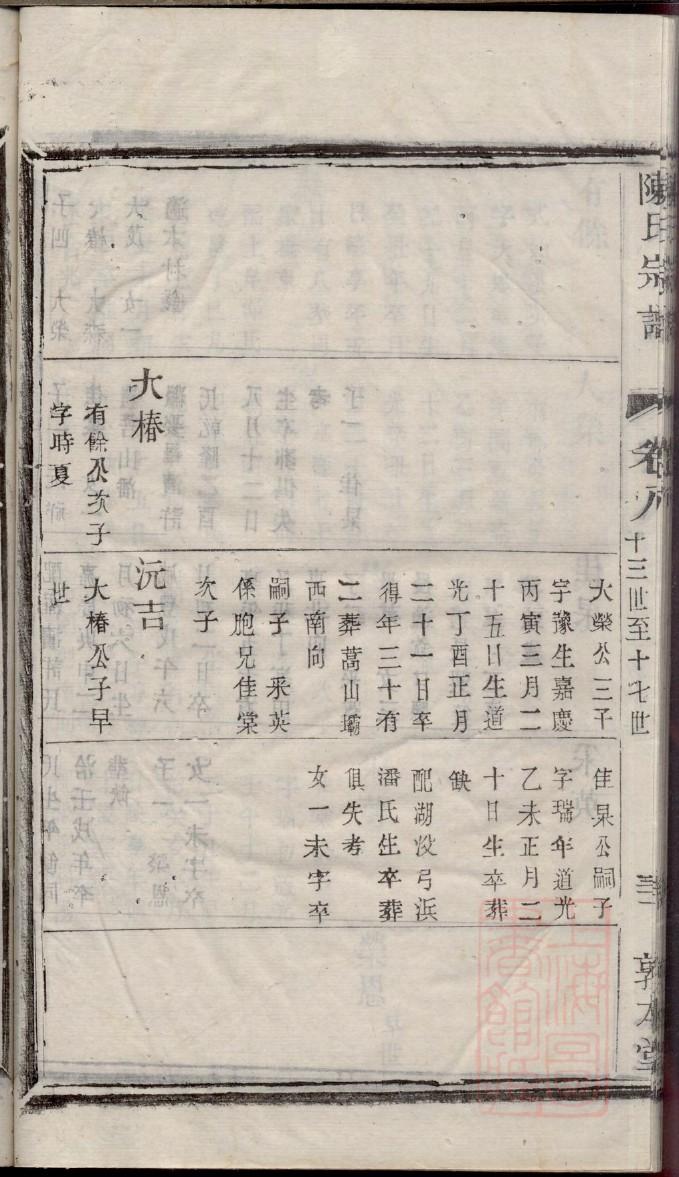 陳氏宗譜
卷八
十三世至十七世
敦本堂
大椿
有餘公次子
字時夏
大榮公三子
字豫生嘉慶
丙寅三月二
十五日生道
光丁酉正月
二十一日卒
得年三十有
二葬蒿山壩
西南向
嗣子 采英
係胞兄佳棠
次子
沅吉
大椿公子早
世
佳杲公嗣子
字瑞年道光
乙未正月二
十日生卒葬
缺
配湖㳇弓浜
潘氏生卒葬
俱失考
女一未字卒
上海圖書館藏